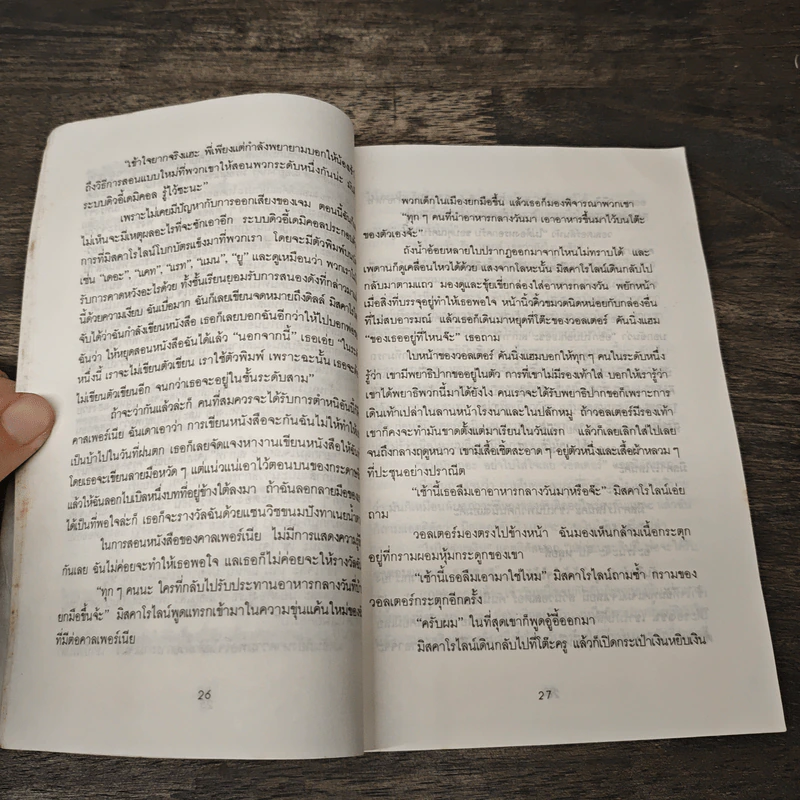 "เข้าใจยากจริงแฮะ พี่เพียงแต่กำลังพยายามบอกให้น้อง
ถึงวิธีการสอนแบบใหม่ที่พวกเขาให้สอนพวกระดับหนึ่งกันน่ะ
ระบบดิวอี้เดมิคอล รู้ไว้ซะนะ"
เพราะไม่เคยมีปัญหากับการออกเสียงของเจม ตอนนี้ฉัน
ไม่เห็นจะมีเหตุผลอะไรที่จะซักเอาอีก ระบบดิวอี้เดมิคอลประกอบ
การที่มิสคาโรไลน์โบกบัตรแข็งมาที่พวกเรา โดยจะมีตัวพิมพ์
เช่น "เดอะ", "แคท", "แรท", "แมน", "ยู" และดูเหมือนว่า พวกเรา
รับการคาดหวังอะไรด้วย ทั้งชั้นเรียนยอมรับการสนองดังที่กล่าว
นี้ด้วยความเงียบ ฉันเบื่อมาก ฉันก็เลยเขียนจดหมายถึงดิลล์ มิสคาโรไลน์
จับได้ว่าฉันกำลังเขียนหนังสือ เธอก็เลยบอกฉันอีกว่าให้ไปบอก
ฉันว่า ให้หยุดสอนหนังสือฉันได้แล้ว "นอกจากนี้" เธอเอ่ย
หนึ่งนี้ เราจะไม่เขียนตัวเขียน เราใช้ตัวพิมพ์ เพราะฉะนั้น เธอจะ
ไม่เขียนตัวเขียนอีก จนกว่าเธอจะอยู่ในชั้นระดับสาม"
ถ้าจะว่ากันแล้วล่ะก็ คนที่สมควรจะได้รับการตำหนิอันนี้
คาลเพอร์เนีย ฉันเดาเอาว่า การเขียนหนังสือจะกันฉันไม่ให้ทำ
เป็นบ้าไปในวันที่ฝนตก เธอก็เลยจัดแจงหางานเขียนหนังสือให้
โดยเธอจะเขียนลายมือหวัด ๆ แต่แน่วแน่เอาไว้ตอนบนของกระดาษ
แล้วให้ฉันลอกไบเบิลหนึ่งบทที่อยู่ข้างใต้ลงมา ถ้าฉันลอกลายมือของ
ได้เป็นที่พอใจล่ะก็ เธอก็จะรางวัลฉันด้วยแซนวิชขนมปังทาเนย
ในการสอนหนังสือของคาลเพอร์เนีย ไม่มีการแสดงความ
กันเลย ฉันไม่ค่อยจะทำให้เธอพอใจ แลเธอก็ไม่ค่อยจะให้รางวัล
"ทุก ๆ คนนะ ใครที่กลับไปรับประทานอาหารกลางวันที่
ยกมือขึ้นจ้ะ" มิสคาโรไลน์พูดแทรกเข้ามาในความขุ่นแค้นใหม่ของ
ที่มีต่อคาลเพอร์เนีย
26
พวกเด็กในเมืองยกมือขึ้น แล้วเธอก็มองพิจารณาพวกเขา
"ทุก ๆ คนที่นำอาหารกลางวันมา เอาอาหารขึ้นมาไว้บนโต๊ะ
ของตัวเองจ้ะ"
ถังน้ำอ้อยหลายใบปรากฏออกมาจากไหนไม่ทราบได้ และ
เพดานก็ดูเคลื่อนไหวได้ด้วย แสงจากโลหะนั้น มิสคาโรไลน์เดินกลับไป
กลับมาตามแถว มองดูและชุ้ยเขี่ยกล่องใส่อาหารกลางวัน พยักหน้า
เมื่อสิ่งที่บรรจุอยู่ทำให้เธอพอใจ หน้านิ่วคิ้วขมวดนิดหน่อยกับกล่องอื่น
ที่ไม่สบอารมณ์ แล้วเธอก็เดินมาหยุดที่โต๊ะของวอลเตอร์ คันนิ่งแฮม
"ของเธออยู่ที่ไหนจ๊ะ" เธอถาม
ใบหน้าของวอลเตอร์ คันนิ่งแฮมบอกให้ทุก ๆ คนในระดับหนึ่ง
รู้ว่า เขามีพยาธิปากขออยู่ในตัว การที่เขาไม่มีรองเท้าใส่ บอกให้เรารู้ว่า
เขาได้พยาธิพวกนี้มาได้ยังไง คนเราจะได้รับพยาธิปากขอก็เพราะการ
เดินเท้าเปล่าในลานหน้าโรงนาและในปลักหมู ถ้าวอลเตอร์มีรองเท้า
เขาก็คงจะทำมันขาดตั้งแต่มาเรียนในวันแรก แล้วก็เลยเลิกใส่ไปเลย
จนถึงกลางฤดูหนาว เขามีเสื้อเชิ้ตสะอาด ๆ อยู่ตัวหนึ่งและเสื้อผ้าหลวม ๆ
ที่ปะชุนอย่างปราณีต
"เช้านี้เธอลืมเอาอาหารกลางวันมาหรือจ๊ะ" มิสคาโรไลน์เอ่ย
ถาม
วอลเตอร์มองตรงไปข้างหน้า ฉันมองเห็นกล้ามเนื้อกระตุก
อยู่ที่กรามผอมหุ้มกระดูกของเขา
"เช้านี้เธอลืมเอามาใช่ไหม" มิสคาโรไลน์ถามซ้ำ กรามของ
วอลเตอร์กระตุกอีกครั้ง
"ครับผม" ในที่สุดเขาก็พูดอู้อี้ออกมา
มิสคาโรไลน์เดินกลับไปที่โต๊ะครู แล้วก็เปิดกระเป๋าเงินหยิบเงิน
27